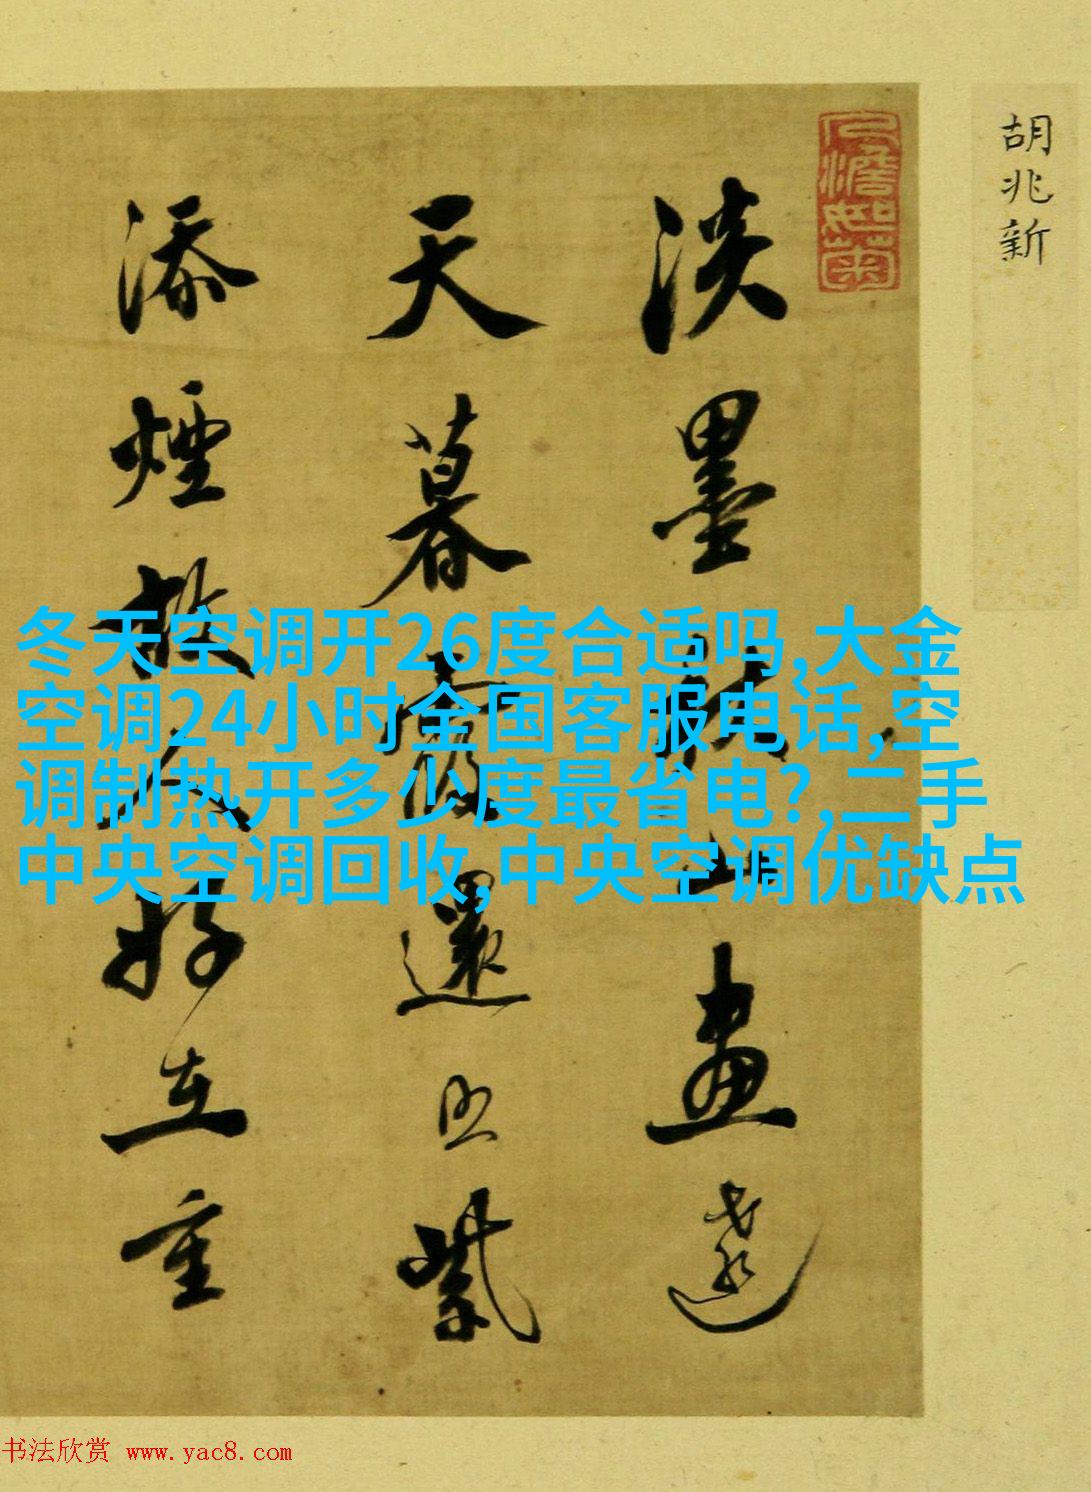 胡兆新
人澹如菊
淡墨秋山畫遠
天暮霞還照紫
添煙故人好在重
冬天空调开26度合适吗,大金
空调24小时全国客服电话,空
调制热开多少度最省电?,二手
中央空调回收,中央空调优缺点
书法欣赏 www.yac8.com